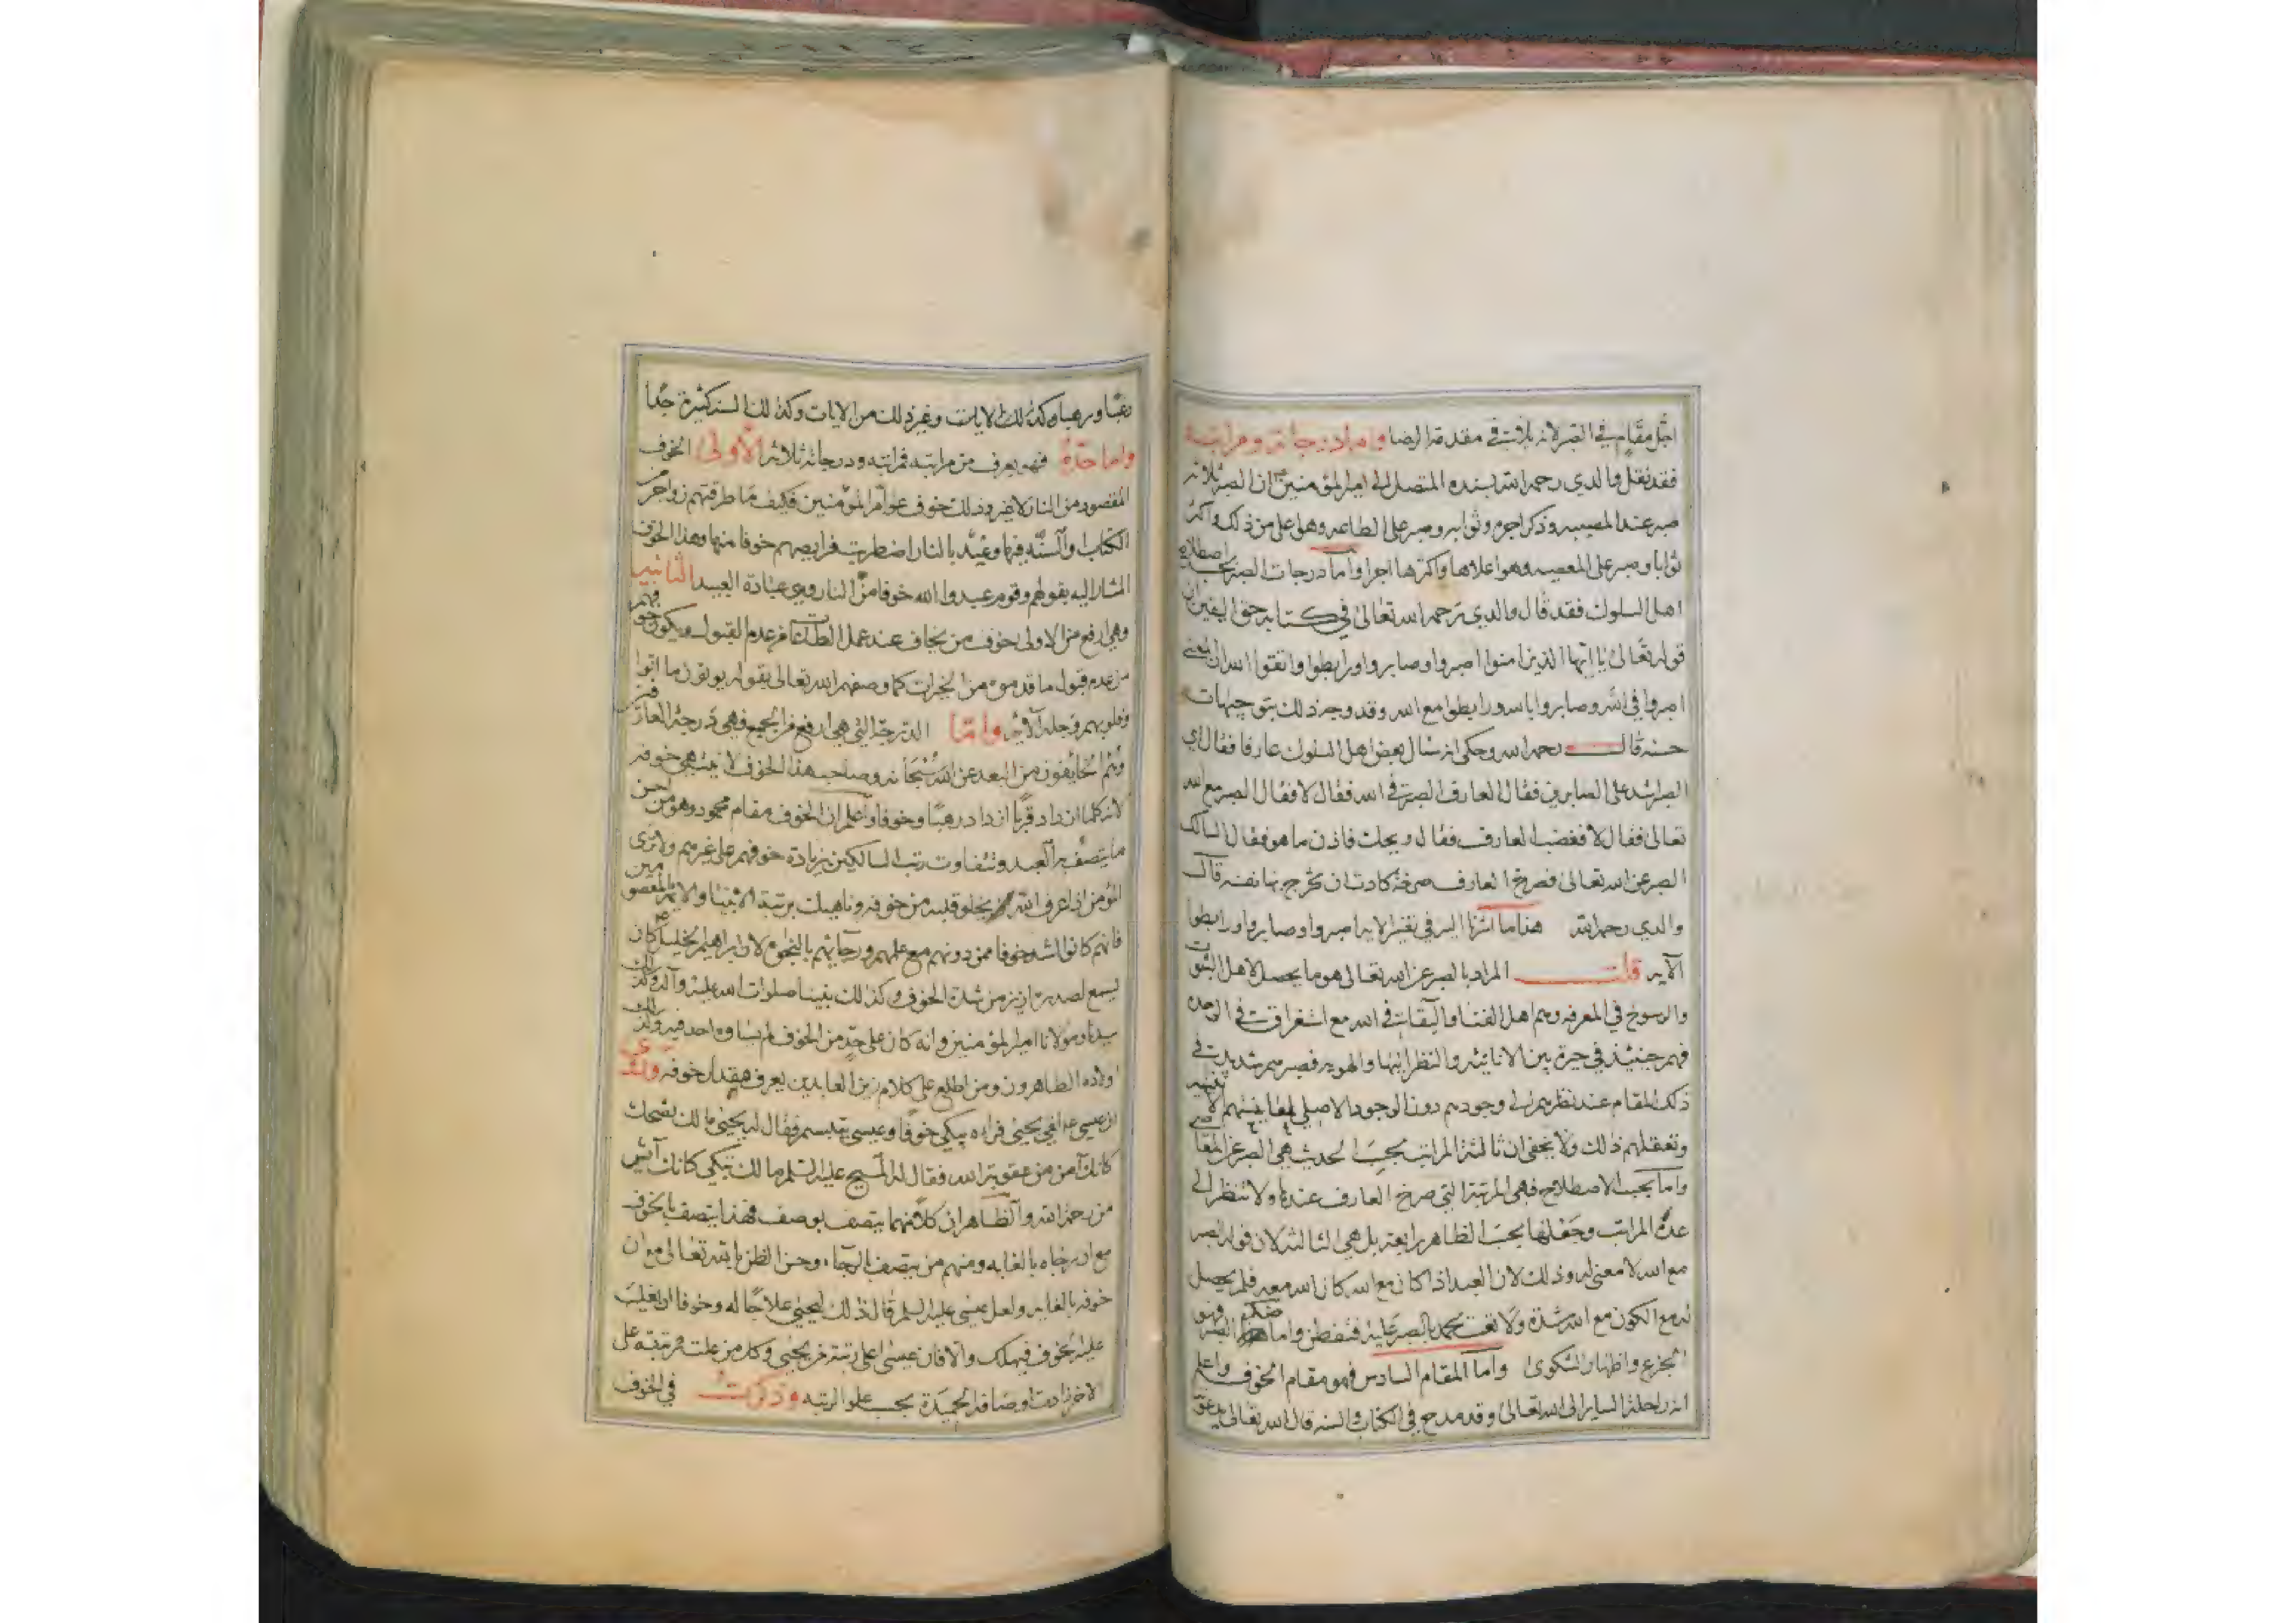 اجل مقام في الصبر لانه ثلاث في مقدمة الرضا واما درجاته ومراتبه
فقد نقل والدي رحمه الله بسنده المتصل الى امير المؤمنين ان الصبر ثلاثة
صبر عند المصيبه وذكر اجره وثوابه وصبر على الطاعه وهو اعلى من ذلك واكثر
ثوابا وصبر على المعصيه وهو اعلاها واكثرها اجرا واما درجات الصبر بحسب اصطلاح
اهل السلوك فقد قال والدي رحمه الله تعالى في كتابه حق اليقين ان
قوله تعالى يا ايها الذين امنوا اصبروا وصابروا ورابطوا واتقوا الله ان المعنى
اصبروا في الله وصابروا بالله ورابطوا مع الله وقد وجه ذلك بتوجيهات
حسنه قال رحمه الله وحكى انه سأل بعض اهل السلوك عارفا فقال اي
الصبر اشد على الصابرين فقال العارف الصبر في الله فقال لا فقال الصبر مع الله
تعالى فقال لا فغضب العارف فقال ويحك فاذن ما هو فقال السالك
الصبر عن الله تعالى فصرخ العارف صرخة كادت ان تخرج بها نفسه قال
والدي رحمه الله هذا ما اشرنا اليه في تفسير الايه اصبروا وصابروا ورابطوا
الآيه قلت المراد بالصبر عن الله تعالى هو ما يحصل لاهل الثبوت
والرسوخ في المعرفه وهم اهل الفناء والبقاء في الله مع استغراق في الوحده
فهم حينئذ في حيرة بين الانانيه والنظر اليها والهويه فصبرهم شديد في
ذلك المقام عند نظرهم الى وجودهم دون الوجود الاصلي
وتعقلهم ذلك ولا يخفى ان ثالثة المراتب بحسب الحديث هي الصبر عن المعاصي
واما بحسب الاصطلاح فهي المرتبة التي صرخ العارف عندها ولا تنظر الى
عدة المراتب وجعلها بحسب الظاهر رابعة بل هي الثالثة لان قوله الصبر
مع الله لا معنى له وذلك لان العبد اذا كان مع الله كان الله معه فلم يحصل
له مع الكون مع الله شدة ولا تعب يحمد بالصبر عليه فتفطن واما ضد الصبر فهو
الجزع واظهار الشكوى واما المقام السادس فهو مقام الخوف واعلم
انه راحلة الساير الى الله تعالى وقد مدح في الكتاب والسنه قال الله تعالى يدعوننا
رغبا ورهبا وكذلك الايات وغير ذلك من الايات وكذلك السنه كثيرة جدا
واما حده فهو يعرف من مراتبه فمراتبه ودرجاته ثلاثه الاولى الخوف
المقصود من النار لا غير وذلك خوف عوام المؤمنين فكيف ما طرقتهم زواجر من
الكتاب والسنه فيها وعيد بالنار اضطربت فرايصهم خوفا منها وهذا الخوف
المشار اليه بقولهم وقوم عبدوا الله خوفا من النار وهي عبادة العبيد الثانيه
وهي ارفع من الاولى خوف من يخاف عند عمل الطاعات من عدم القبول ويكون خوفهم
من عدم قبول ما قدموه من الخيرات كما وصفهم الله تعالى بقوله يوتون ما اتوا
وقلوبهم وجلة الآيه واما الدرجة التي هي ارفع من الجميع فهي درجة العارفين
وهم الخايفون من البعد عن الله سبحانه وصاحب هذا الخوف لا ينتهي خوفه
لانه كلما ازداد قربا ازداد رهبا وخوفا واعلم ان الخوف مقام محمود وهو من احسن
ما يتصف به العبد وتتفاوت رتب السالكين بزيادة خوفهم على غيرهم ولا ترى
المؤمن اذا عرف الله يخلو قلبه من خوفه وناهيك برتبة الانبيا والايمة المعصومين
فانهم كانوا اشد خوفا ممن دونهم مع علمهم ورجائهم بالنجاة لان ابراهيم الخليل كان
يسمع لصدره ازيز من شدة الخوف وكذلك نبينا صلوات الله عليه وآله وكذلك
سيدنا ومولانا امير المؤمنين وانه كان على حد من الخوف لم يساوه احد فيه وكذلك
اولاده الطاهرون ومن اطلع على كلام زين العابدين يعرف مقدار خوفه وروي
ان عيسى لقي يحيى فراه يبكي خوفا وعيسى يتبسم فقال له يحيى مالك تضحك
كانك آمن من عقوبة الله فقال له المسيح عليه السلم مالك تبكي كانك آيس
من رحمة الله والظاهر ان كلا منهما يتصف بوصف فهذا يتصف بالخوف
مع ان رجاه بالغايه ومنهم من يتصف بالرجاء وحسن الظن بالله تعالى مع ان
خوفه بالغايه ولعل عيسى عليه السلم قال ذلك ليحيى علاجا له وخوفا ان يغلب
عليه الخوف فيهلك والا فان عيسى اعلى رتبة من يحيى وكل من علت مرتبته على
الاخر زادت اوصافه الحميدة بحسب علو الرتبه وذكرت في الخوف